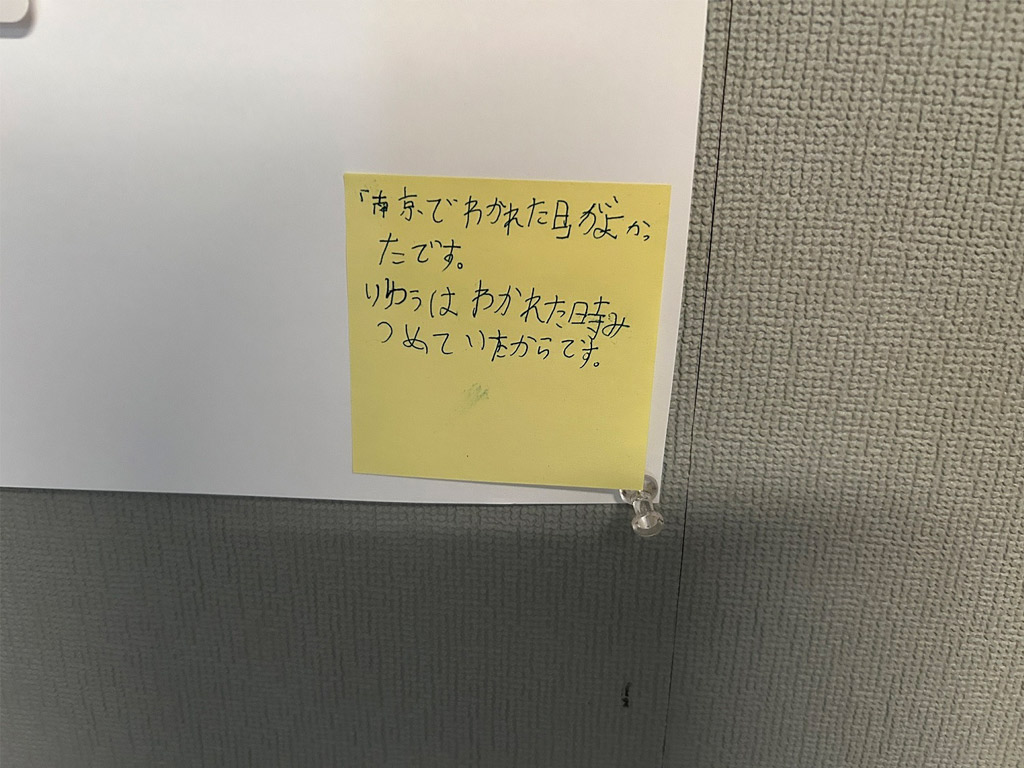 「南京でわかれた母がよかっ
たです。
りゆうはわかれた時み
つめていたからです。